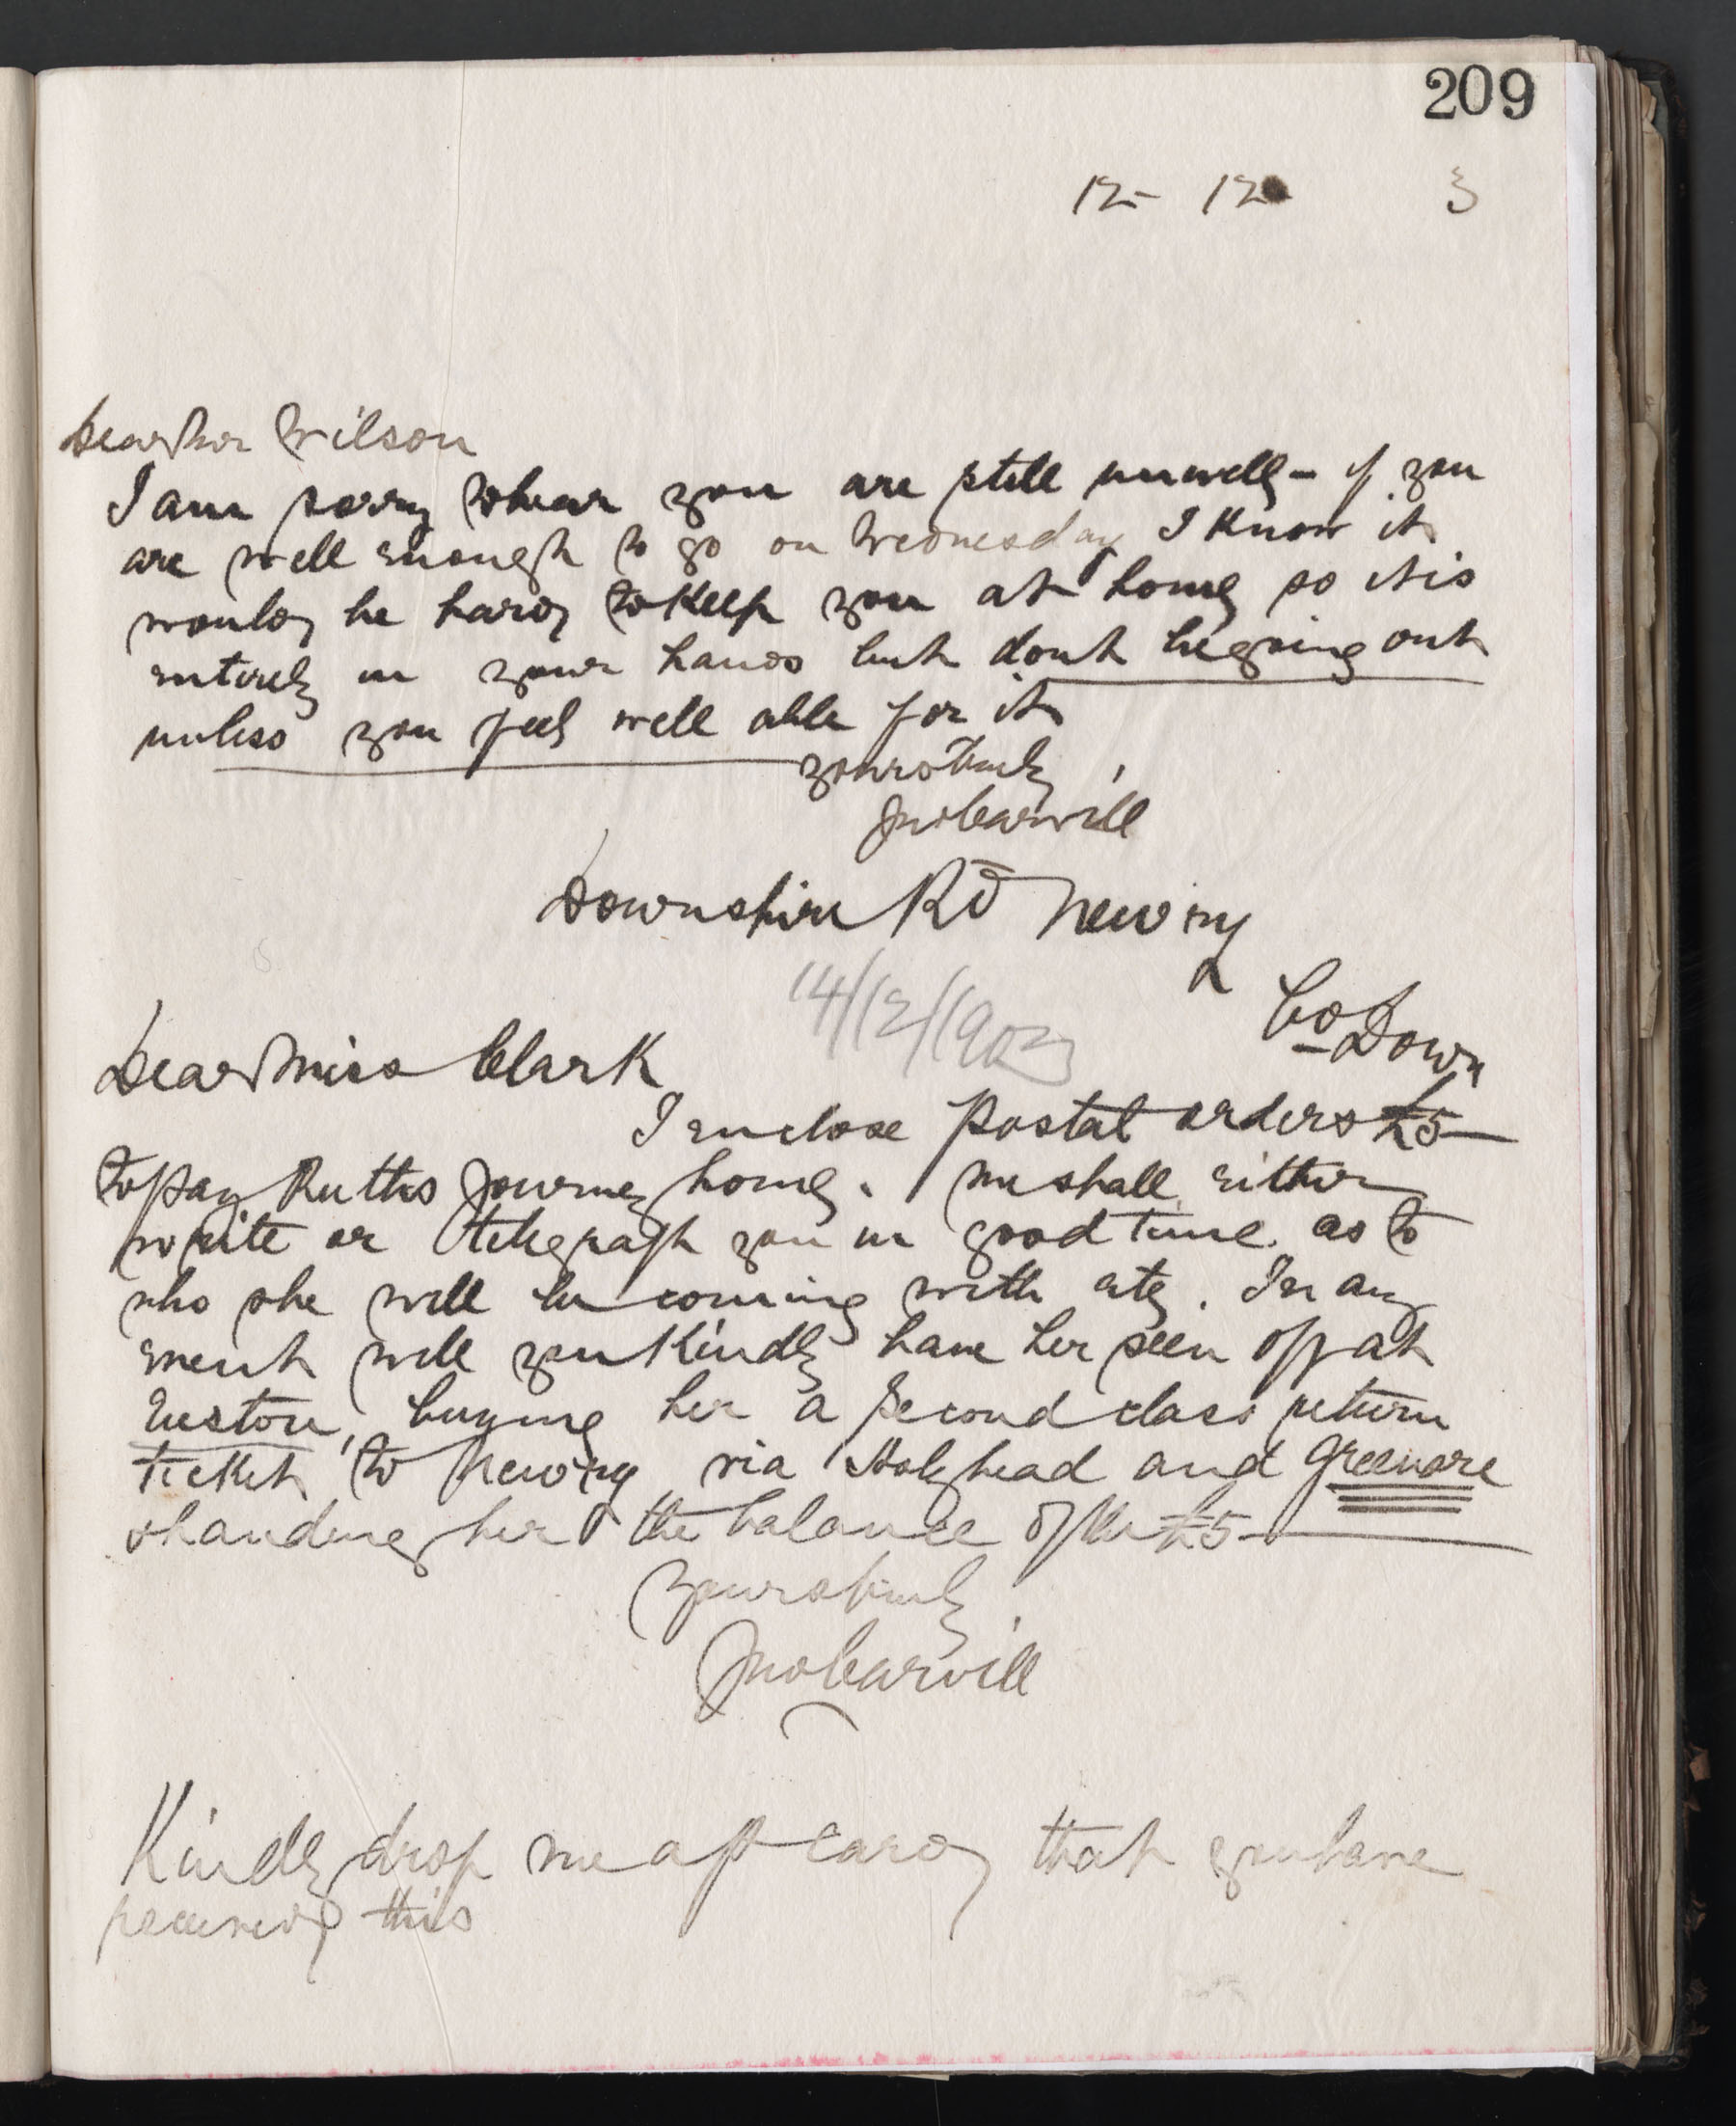 209
12- 12 3
Dear Mr Wilson
I am sorry to hear you are still unwell - if you
are well enough to go on Wednesday I know it
would be hard to keep you at home so it is
entirely in your hands but dont be going out
unless you feel well able for it
yours truly
Jno Carvill
Downshire Rd Newry
Co Down
14/12/1903
Dear Miss Clark
I enclose postal orders £5-
to pay Ruths journey home. We shall either
write or telegraph you in good time as to
who she will be coming with etc. In any
event will you kindly have her seen off at
Euston, buying her a second class return
ticket to Newry via Holyhead and Greenore
& handing her the balance of the £5-
Yours truly
Jno Carvill
Kindly drop me a pt card that you have
received this